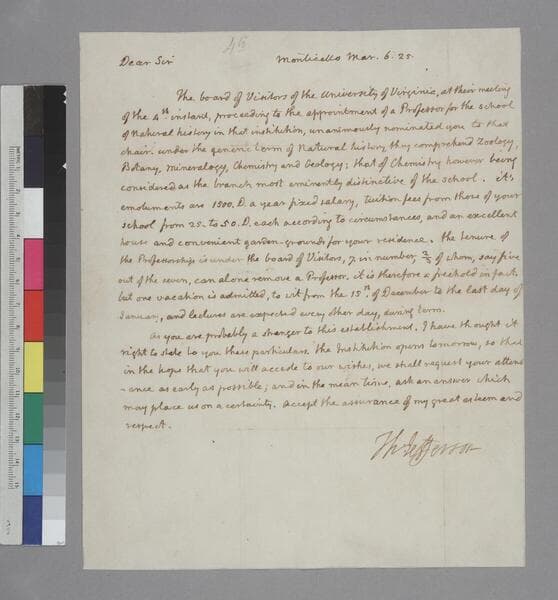 45
Dear Sir Monticello Mar. 6. 25.
The board of Visitors of the University of Virginia, at their meeting
of the 4th instant, proceeding to the appointment of a Professor for the school
of Natural history in that institution, unanimously nominated you to that
chair. under the generic term of Natural history they comprehend Zoology,
Botany, Mineralogy, Chemistry and Geology; that of Chemistry however being
considered as the branch most eminently distinctive of the school. it's
emoluments are 1500. D. a year fixed salary, tuition fees from those of your
school from 25. to 50. D. each according to circumstances, and an excellent
house and convenient garden-grounds for your residence. the tenure of
the Professorships is under the board of Visitors, 7. in number, 2/3 of whom, say five
out of the seven, can alone remove a Professor. it is therefore a freehold in fact.
but one vacation is admitted, to wit from the 15th of December to the last day of
January, and lectures are expected every other day, during term.
As you are probably a stranger to this establishment, I have thought it
right to state to you these particulars. the Institution opens tomorrow, so that
in the hope that you will accede to our wishes, we shall request your attend
-ance as early as possible; and in the mean time, ask an answer which
may place us on a certainty. Accept the assurance of my great esteem and
respect.
Th Jefferson